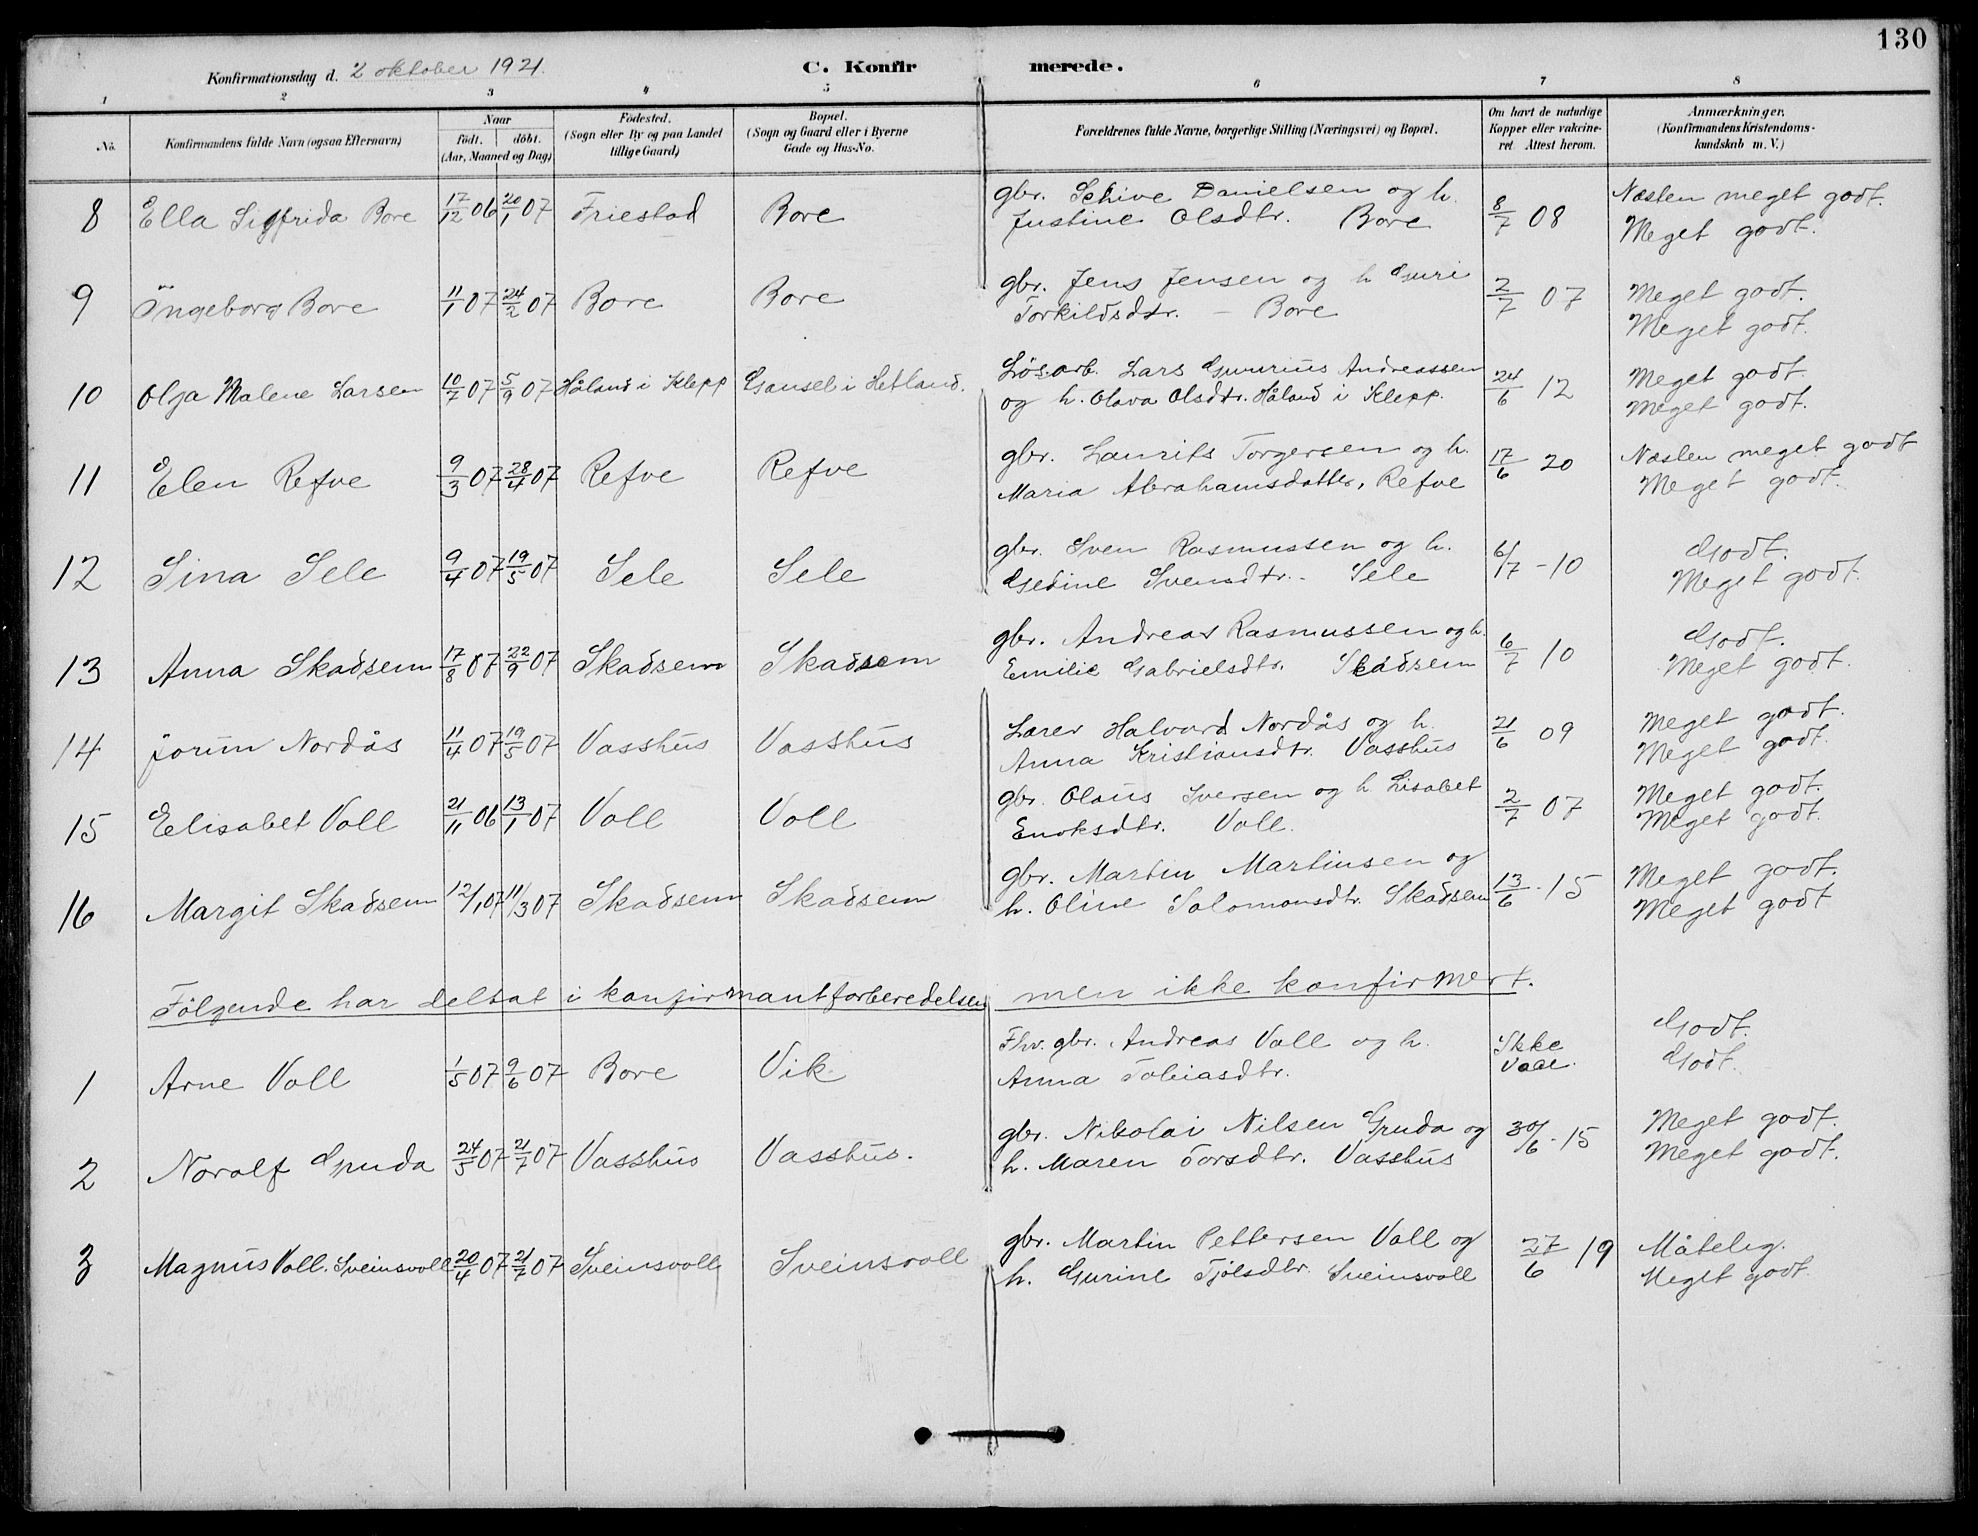 130
Konfirmationsdag d. 2 oktober 1921.
C. Konfir merede.
1 2 3 4 5 6 7 8
No.
Konfirmandens fulde Navn (ogsaa Efternavn)
Naar
født. døbt.
(Aar, Maaned og Dag)
Fødested.
(Sogn eller By og paa Landet
tillige Gaard)
Bopæl.
(Sogn og Gaard eller i Byerne
Gade og Hus-No.
Forældrenes fulde Navne, borgerlige Stilling (Næringsvei) og Bopæl.
Om havt de naturlige
Kopper eller vakcine-
ret Attest herom.
Anmærkninger.
(Konfirmandens Kristendoms-
kundskab m. V.)
8 Ella Sigfrida Bore 17/12 06 20/1 07 Friestad Bore gbr. Schive Danielsen og h. 8/7 08 Næsten meget godt.
Justine Olsdtr. Bore Meget godt.
9 Ingeborg Bore 11/1 07 24/2 07 Bore Bore gbr. Jens Jensen og h Guri 2/7 07 Meget godt.
Torkildsdtr. – Bore Meget godt.
10 Olga Malene Larsen 10/7 07 5/9 07 Håland i Klepp Gausel i Hetland. Løsarb. Lars Gunerius Andreassen 24/6 12 Meget godt.
og h. Olava Olsdtr. Håland i Klepp. Meget godt.
11 Elen Refve 9/3 07 28/4 07 Refve Refve gbr. Laurits Torgersen og h. 17/6 20 Næsten meget godt
Maria Abrahamsdatter, Refve Meget godt.
12 Sina Sele 9/4 07 19/5 07 Sele Sele gbr. Sven Rasmussen og h. 6/7 - 10 Godt.
Gjedine Svensdtr. - Sele Meget godt.
13 Anna Skadsem 17/8 07 22/9 07 Skadsem Skadsem gbr. Andreas Rasmussen og h. 6/7 10 Godt.
Emilie Gabrielsdtr. Skadsem Meget godt.
14 Jorun Nordås 11/4 07 19/5 07 Vasshus Vasshus Lærer Halvard Nordås og h. 21/6 09 Meget godt.
Anna Kristiansdtr. Vasshus Meget godt.
15 Elisabet Voll 21/11 06 13/1 07 Voll Voll gbr. Olaus Iversen og h. Lisabet 2/7 07 Meget godt.
Enoksdtr. Voll. Meget godt.
16 Margit Skadsem 12/1 07 11/3 07 Skadsem Skadsem gbr. Martin Martinsen og 13/6 - 15 Meget godt.
h. Oline Salomonsdtr. Skadsem Meget godt
Følgende har deltat i konfirmantforberedelsen men ikke konfirmert.
1 Arne Voll 1/5 07 9/6 07 Bore Vik Fhv. gbr. Andreas Voll og h. Ikke Godt.
Anna Tobiasdtr. Vacc. Godt.
2 Noralf Gruda 24/5 07 21/7 07 Vasshus Vasshus. gbr. Nikolai Nilsen Gruda og 30/6 - 15 Meget godt.
h. Maren Torsdtr. Vasshus Meget godt.
3 Magnus Voll. Sveinsvoll 20/4 07 21/7 07 Sveinsvoll Sveinsvoll gbr. Martin Pettersen Voll og 27/6 19 Måtelig.
h. Gurine Tjølsdtr. Sveinsvoll Meget godt